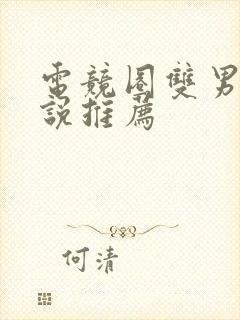 電競圈雙男
說推薦
何清